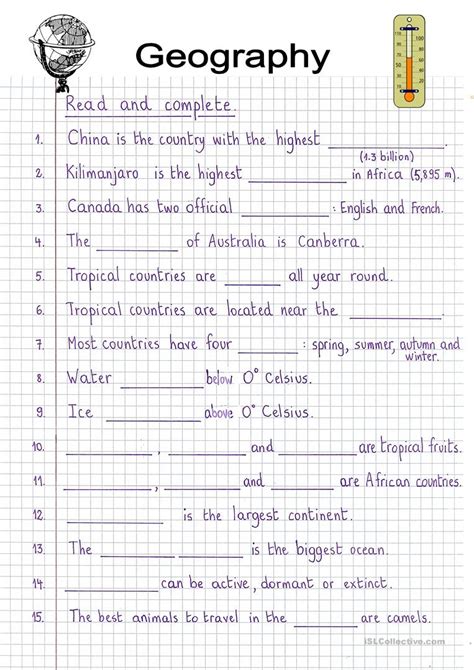 Geography
Read and complete.
1. China is the country with the highest ____________
(1.3 billion)
2. Kilimanjaro is the highest ____________ in Africa (5,895 m).
3. Canada has two official ____________ : English and French.
4. The ____________ of Australia is Canberra.
5. Tropical countries are ________ all year round.
6. Tropical countries are located near the ____________.
7. Most countries have four ________ : spring, summer, autumn and
winter.
8. Water ____________ below 0° Celsius.
9. Ice ____________ above 0° Celsius.
10. ____________, ____________ and ____________ are tropical fruits.
11. ____________, ____________ and ____________ are African countries.
12. ____________ is the largest continent.
13. The ____________ ____________ is the biggest ocean.
14. ____________ can be active, dormant or extinct.
15. The best animals to travel in the ________ are camels.
iSLCollective.com